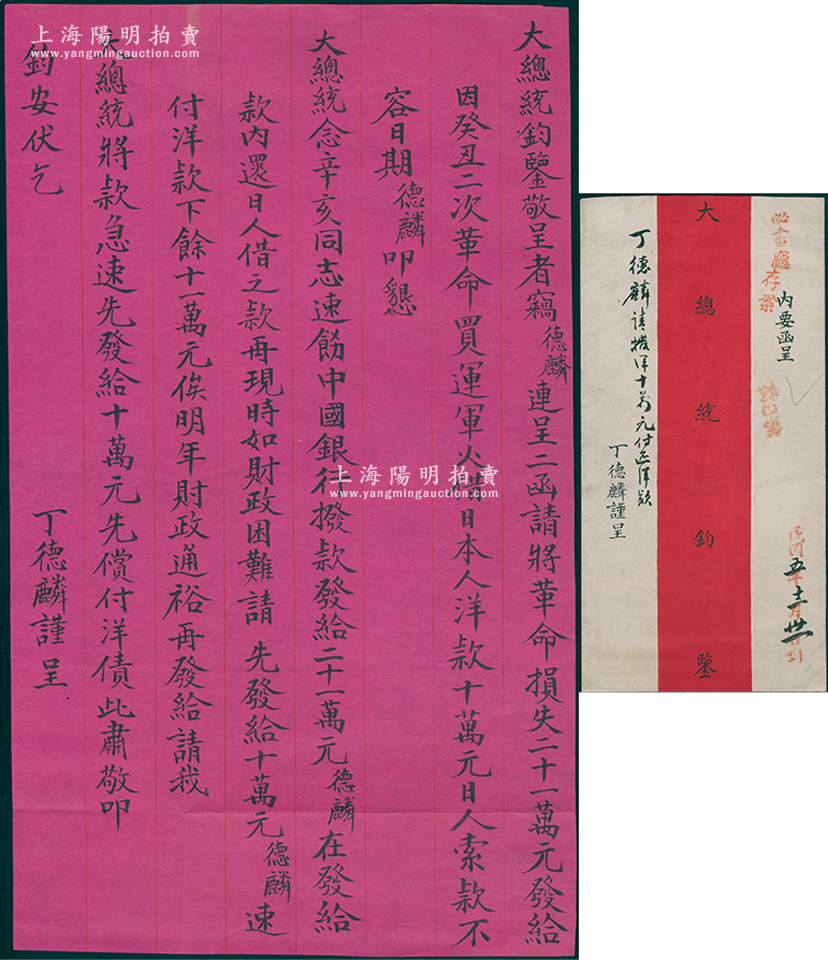 大總統鈞鑒敬呈者竊德麟連呈二函請將革命損失二十一萬元發給
因癸丑二次革命買運軍火借日本人洋款十萬元日人索款不
容日期德麟叩懇
大總統念辛亥同志速飭中國銀行撥款發給二十一萬元德麟在發給
款內還日人借之款再現時如財政困難請先發給十萬元德麟速
付洋款下餘十一萬元俟明年財政通裕再發給請我
大總統將款急速先發給十萬元先償付洋債此肅敬叩
鈞安伏乞
丁德麟謹呈
秘書廳存案
內要函呈
民國五年十二月廿一日到
大總統鈞鑒
丁德麟請撥洋十萬元付還洋款
丁德麟謹呈
上海陽明拍賣
www.yangmingauction.com
上海陽明拍賣
www.yangmingauction.com